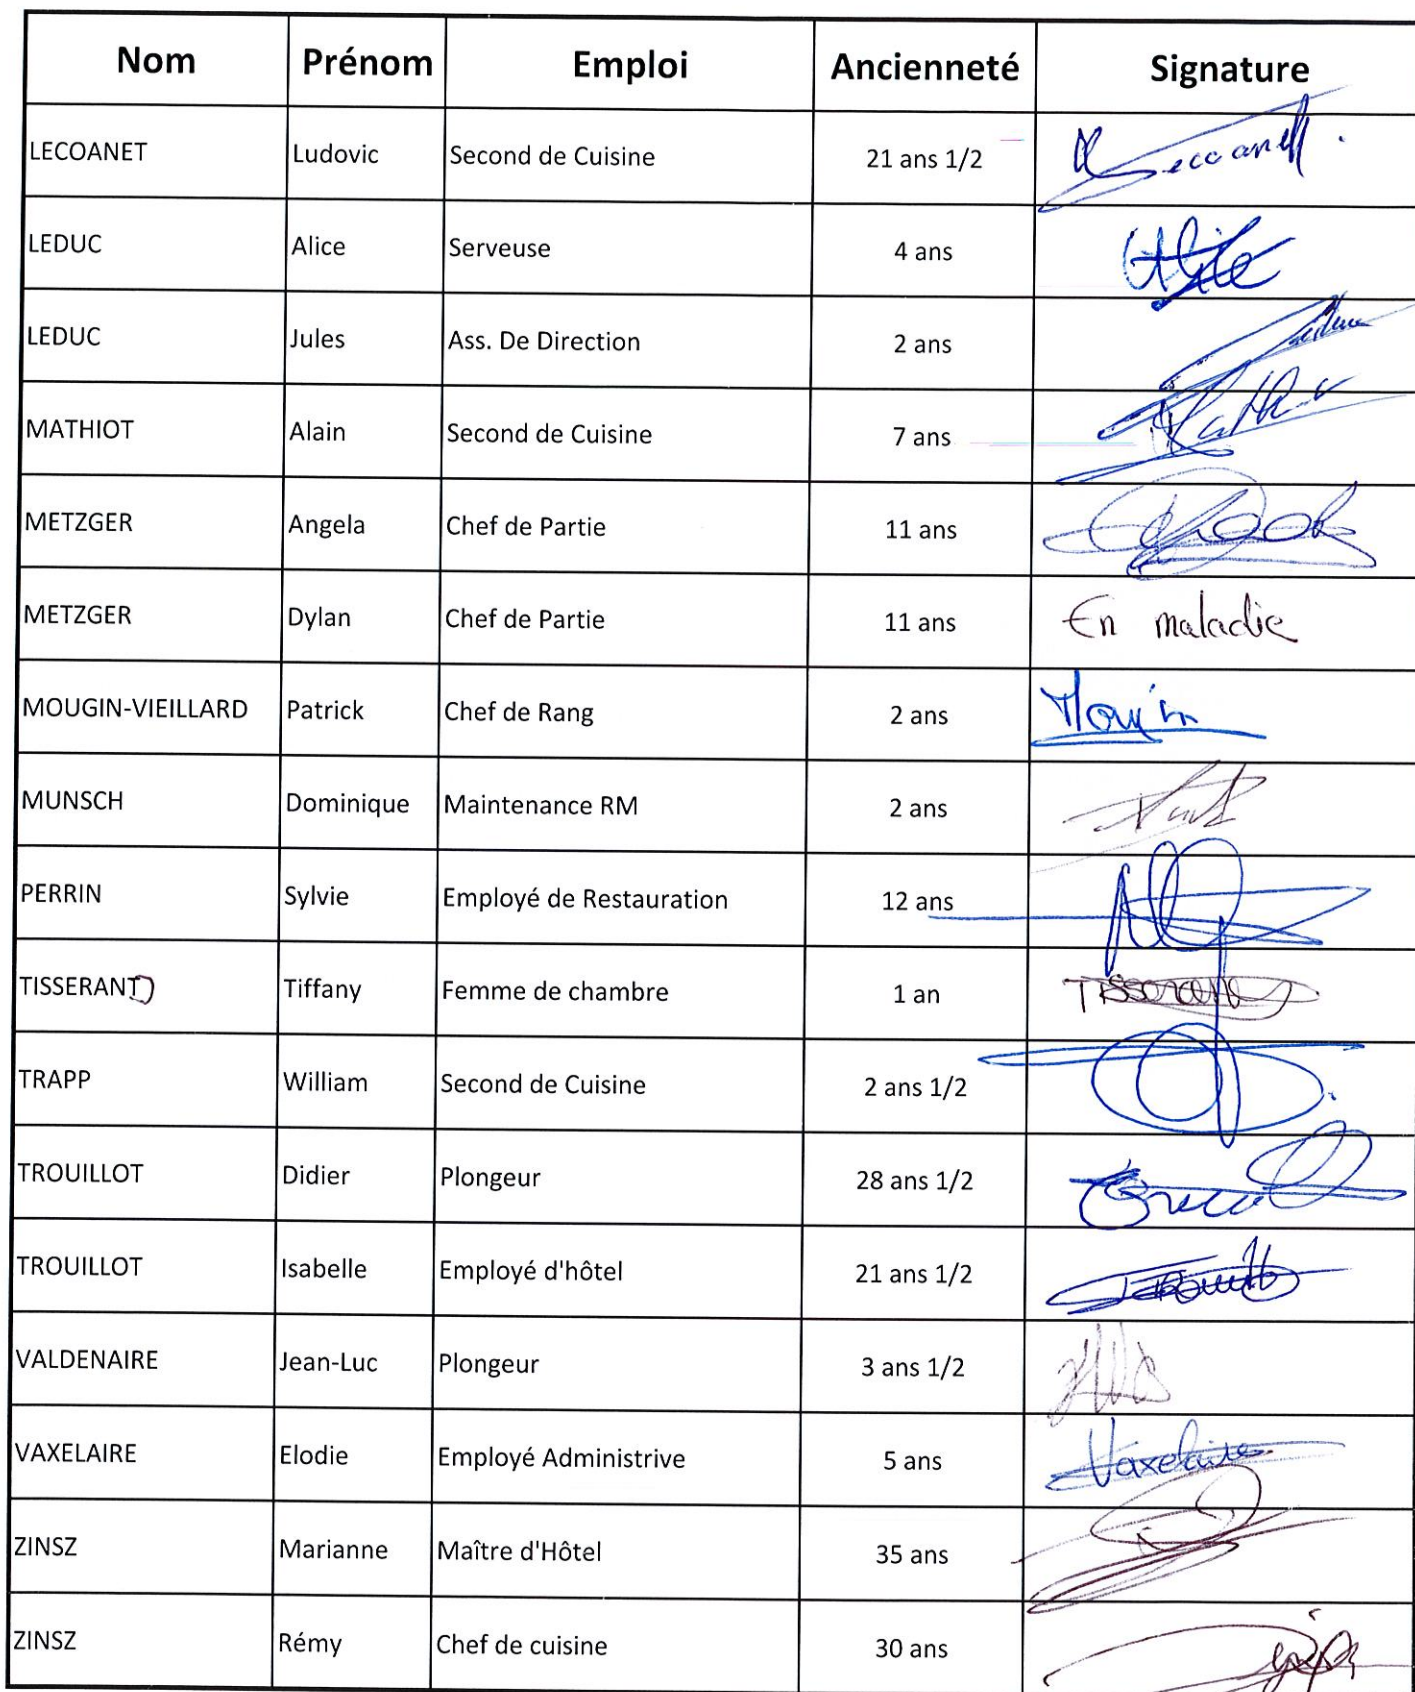 Nom Prénom Emploi Ancienneté Signature
LECOANET Ludovic Second de Cuisine 21 ans 1/2 Lecoanet
LEDUC Alice Serveuse 4 ans
LEDUC Jules Ass. De Direction 2 ans Leduc
MATHIOT Alain Second de Cuisine 7 ans
METZGER Angela Chef de Partie 11 ans
METZGER Dylan Chef de Partie 11 ans En maladie
MOUGIN-VIEILLARD Patrick Chef de Rang 2 ans
MUNSCH Dominique Maintenance RM 2 ans
PERRIN Sylvie Employé de Restauration 12 ans
TISSERAND Tiffany Femme de chambre 1 an Tisserand
TRAPP William Second de Cuisine 2 ans 1/2
TROUILLOT Didier Plongeur 28 ans 1/2
TROUILLOT Isabelle Employé d'hôtel 21 ans 1/2
VALDENAIRE Jean-Luc Plongeur 3 ans 1/2
VAXELAIRE Elodie Employé Administrive 5 ans Vaxelaire
ZINSZ Marianne Maître d'Hôtel 35 ans
ZINSZ Rémy Chef de cuisine 30 ans